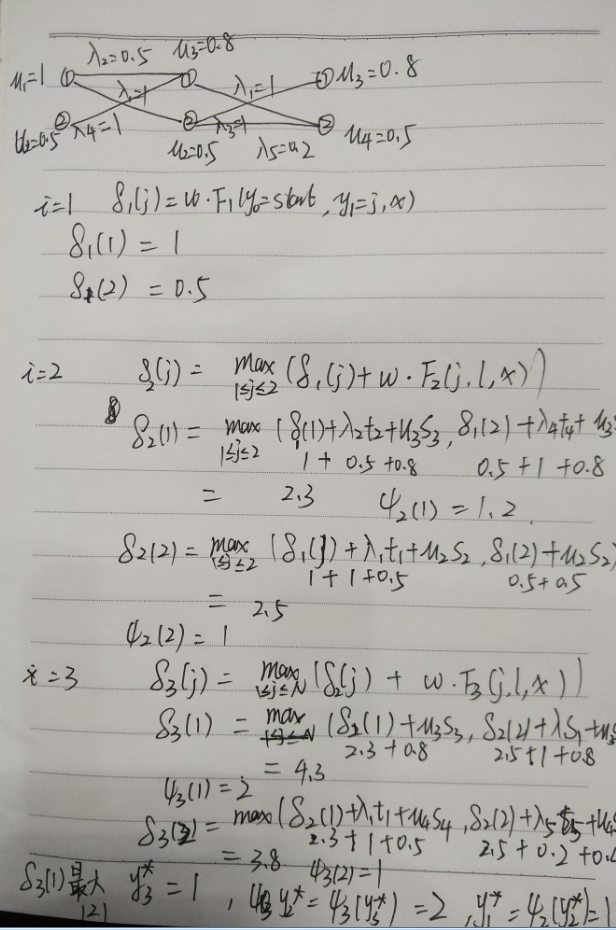 λ₂=0.5 μ₃=0.8
μ₁=1 ① ① λ₁=1 ① μ₃=0.8
λ₁=1
μ₂=0.5 ② λ₄=1 ② λ₃=1 ② μ₄=0.5
μ₂=0.5 λ₅=0.2
i=1 δ₁(j)=w·F₁(y₀=start, y₁=j,x)
δ₁(1) = 1
δ₁(2) = 0.5
i=2 δ₂(j) = max (δ₁(j)+w·F₂(j,l,x))
1≤j≤2
δ₂(1) = max (δ(1)+λ₂t₂+μ₃S₃, δ₁(2)+λ₄t₄+μ₃S
1≤j≤2 1 + 0.5+0.8 0.5+1+0.8
= 2.3 ψ₂(1)=1,2
δ₂(2) = max (δ₁(j)+λ₁t₁+μ₂S₂, δ₁(2)+μ₂S₂)
1≤j≤2 1+1+0.5 0.5+0.5
= 2.5
ψ₂(2)=1
i=3 δ₃(j) = max (δ₂(j) + w·F₃(j,l,x))
1≤j≤N
δ₃(1) = max (δ₂(1)+μ₃S₃, δ₂(2)+λS₁+μ₃
1≤j≤N 2.3+0.8 2.5+1+0.8
= 4.3
ψ₃(1)=2
δ₃(2) = max(δ₂(1)+λ₁t₁+μ₄S₄, δ₂(2)+λ₅t₅+μ₄
2.3+1+0.5 2.5+0.2+0.
= 3.8 ψ₃(2)=1
δ₃(1)最大 y₃*=1, y₂*=ψ₃(y₃*)=2, y₁*=ψ₂(y₂*)=1
121